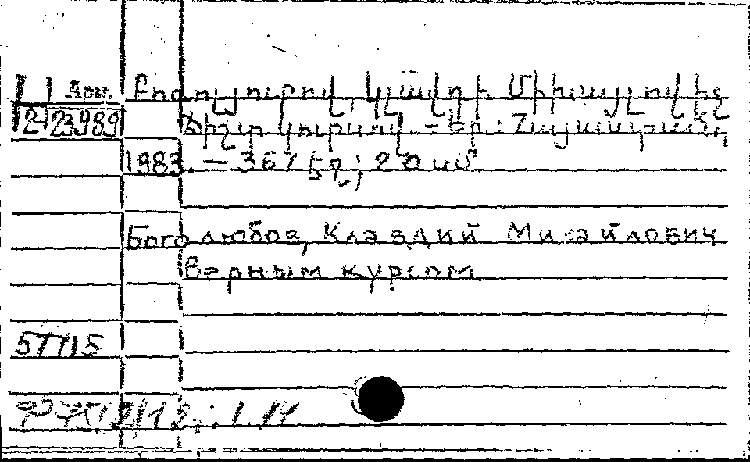 Арм. Բոգոլյուբով, Կլավդի Միխայլովիչ
2 23989 Ճիշտ կուրսով. - Եր.: Հայաստան,
1983. — 367 էջ; 20 սմ
Боголюбов, Клавдий Михайлович
Верным курсом